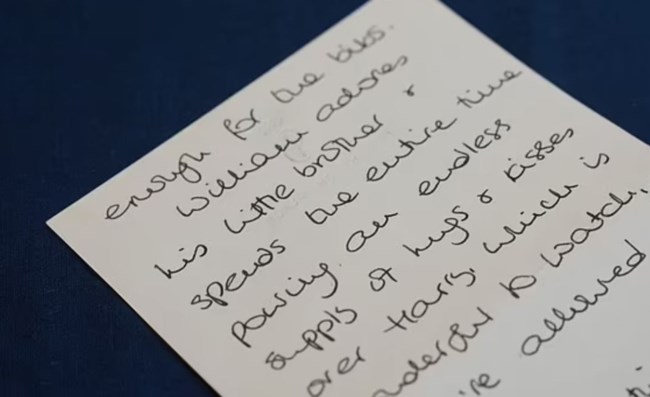 enough for the bibs.
William adores
his little brother &
spends the entire time
pouring an endless
supply of hugs & kisses
over Harry, which is
wonderful to watch.
're allowed